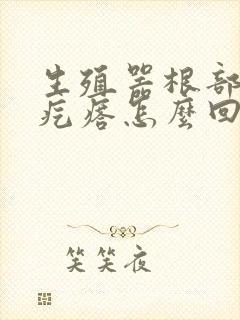 生殖器根部
疙瘩怎麼回
笑笑夜